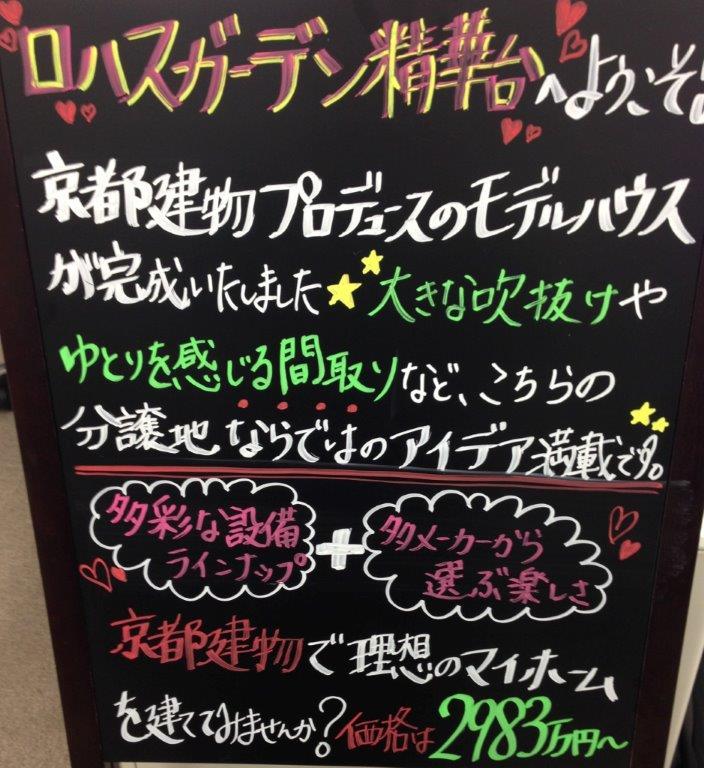 ロハスガーデン精華台へようこそ
京都建物プロデュースのモデルハウス
が完成いたしました★★大きな吹抜けや
ゆとりを感じる間取りなど、こちらの
分譲地ならではのアイデア満載です。
多彩な設備
ラインナップ
+
多メーカーから
選ぶ楽しさ
京都建物で理想のマイホーム
を建ててみませんか?価格は2983万円~